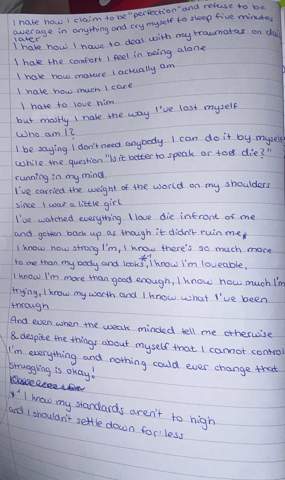 I hate how I claim to be "perfection" and refuse to be
average in anything and cry myself to sleep five minutes
later
I hate how I have to deal with my traumatas on
I hate the comfort I feel in being alone
I hate how mature I actually am
I hate how much I care
I hate to love him
but mostly I hate the way I've lost myself
Who am I?
I be saying I don't need anybody. I can do it by myself
While the question "Is it better to speak or to die?"
running in my mind.
I've carried the weight of the world on my shoulders
since I was a little girl
I've watched everything I love die infront of me
and gotten back up as though it didn't ruin me,
I know how strong I'm, I know there's so much more
to me than my body and looks,*I know I'm loveable,
I know I'm more than good enough, I know how much I'm
trying, I know my worth and I know what I've been
through
And even when the weak minded tell me otherwise
& despite the things about myself that I cannot control
I'm everything and nothing could ever change that
Struggling is okay!
* I know my standards aren't to high
and I shouldn't settle down for less